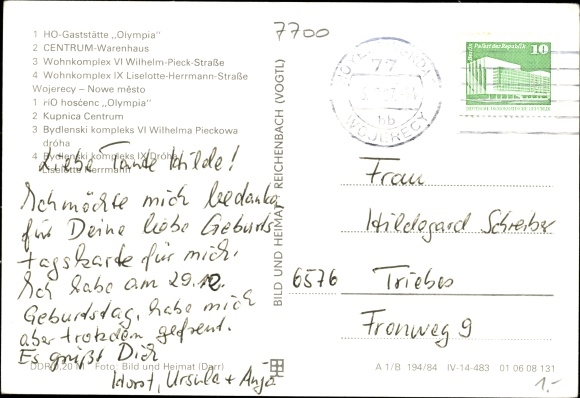 1 HO-Gaststätte „Olympia“
2 CENTRUM-Warenhaus
3 Wohnkomplex VI Wilhelm-Pieck-Straße
4 Wohnkomplex IX Liselotte-Herrmann-Straße
Wojerecy – Nowe město
1 HO hosćenc „Olympia“
2 Kupnica Centrum
3 Bydlenski kompleks VI Wilhelma Pieckowa
dróha
4 Bydlenski kompleks IX Dróha
Liselotte Herrmann
Liebe Tante Hilde!
Ich möchte mich bedanken
für Deine liebe Geburts
tagskarte für mich.
Ich habe am 29.12.
Geburtstag, habe mich
aber trotzdem gefreut.
Es grüßt Dich
Horst, Ursula + Anja
DDR 0,20 M Foto: Bild und Heimat (Darr)
BILD UND HEIMAT REICHENBACH (VOGTL)
7700
77
bb
WOJERECY
Palast der Republik
10
Frau
Hildegard Schreiber
6576 Triebes
Fronweg 9
A 1/B 194/84 IV-14-483 01 06 08 131
1,-